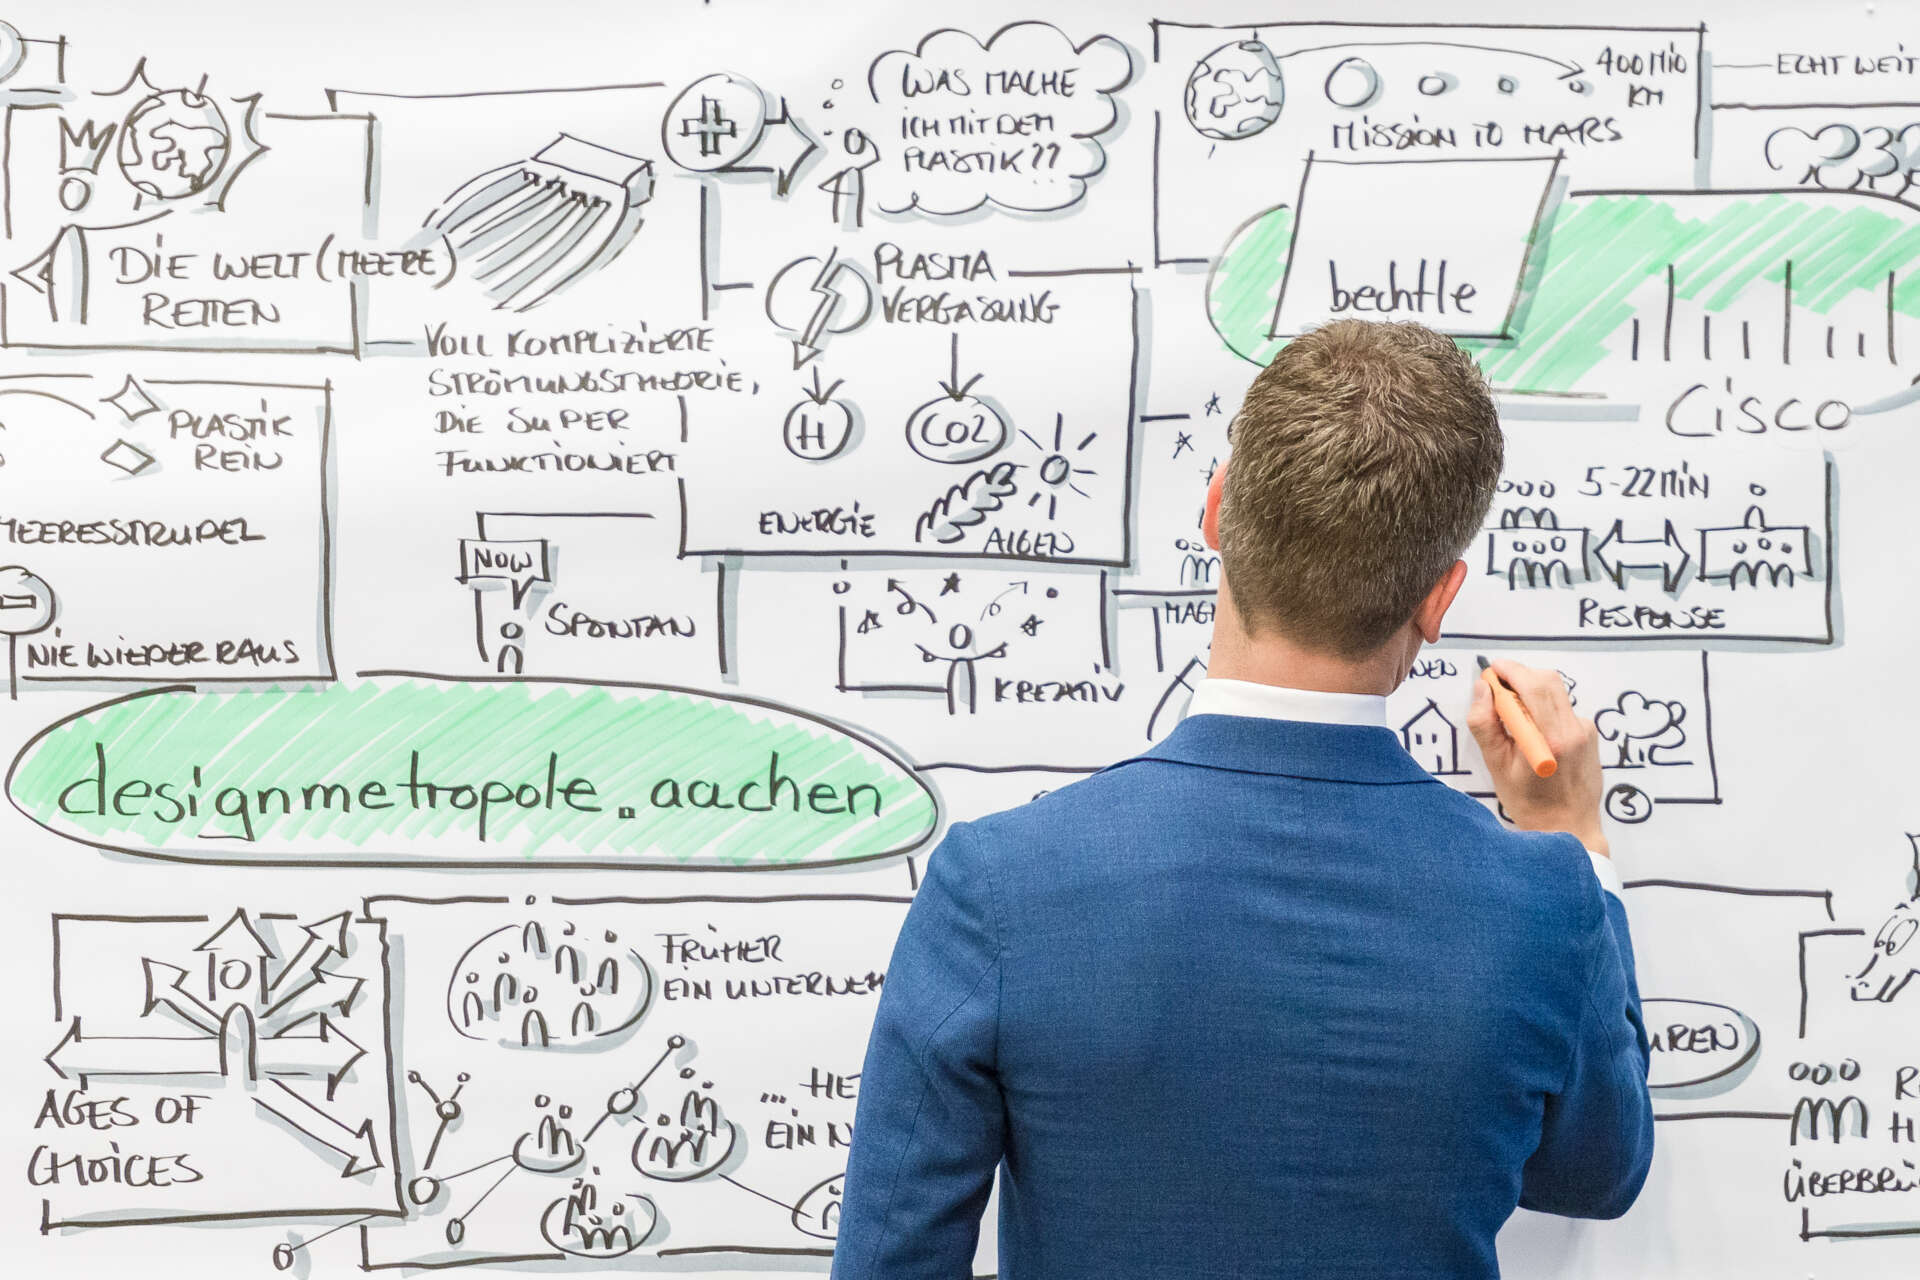 DIE WELT (MEERE)
RETTEN
PLASTIK
REIN
MEERESSTRUDEL
NIE WIEDER RAUS
VOLL KOMPLIZIERTE
STRÖMUNGSTHEORIE,
DIE SUPER
FUNKTIONIERT
NOW
SPONTAN
WAS MACHE
ICH MIT DEM
PLASTIK??
PLASMA
VERGASUNG
H
CO2
ENERGIE
ALGEN
KREATIV
400 MIO
KM
MISSION TO MARS
ECHT WEIT
bechtle
CISCO
5-22 MIN
RESPONSE
3
designmetropole.aachen
AGES OF
CHOICES
FRÜHER
EIN
...
EIN